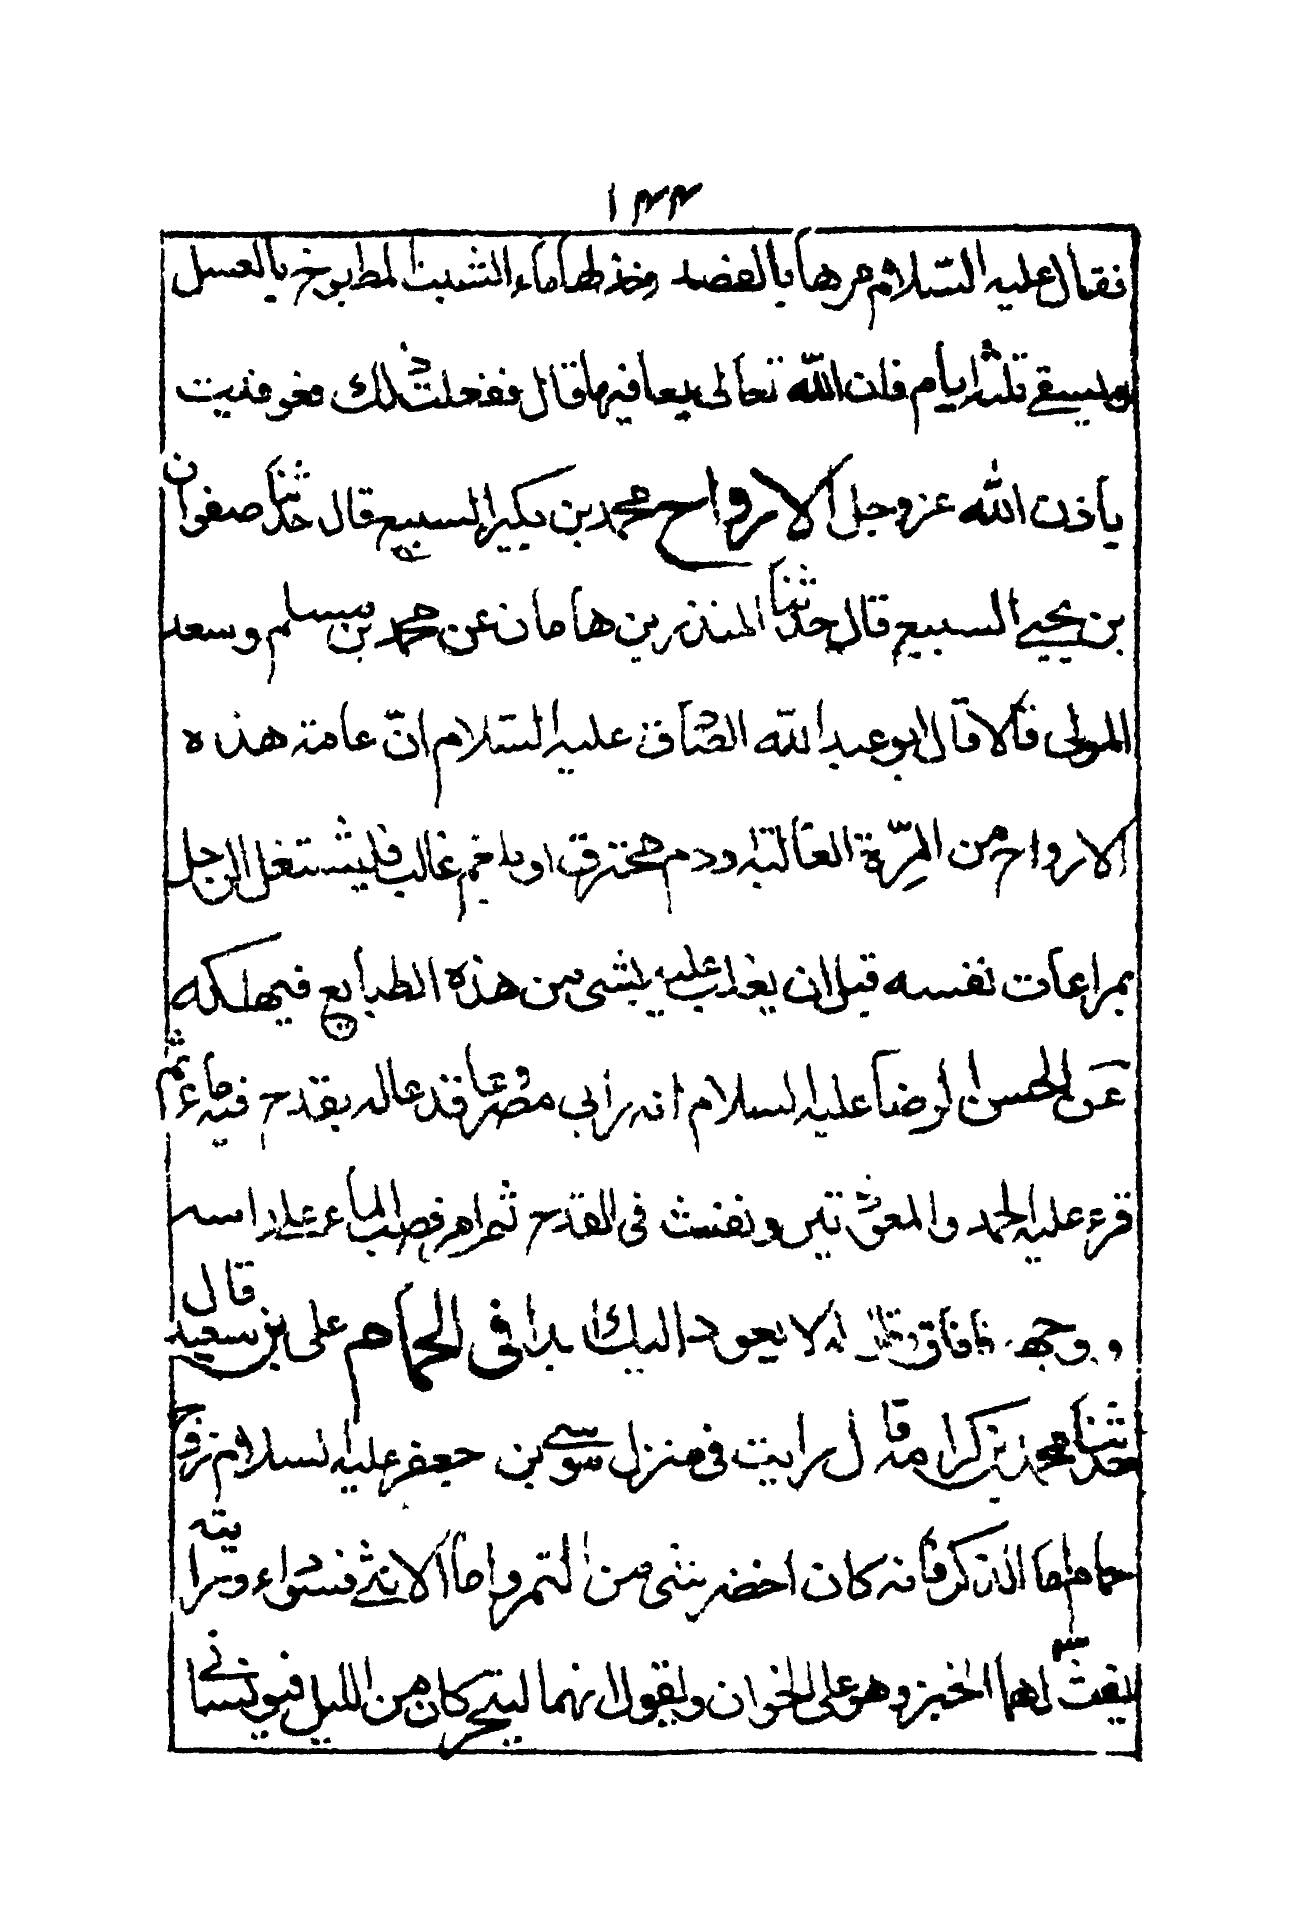 ١٣٣
فقال عليه السّلام مرها بالفصد وخذ لها ماء الشبث المطبوخ بالعسل
ويسقى ثلثة ايام فان الله تعالى يعافيها قال ففعلت ذلك فعوفيت
باذن الله عز وجل الارواح محمد بن بكير السبيع قال حدثنا صفوان
بن يحيى السبيع قال حدثنا المنذر بن هامان عن محمد بن مسلم وسعد
المولى قالا قال ابو عبد الله الصّادق عليه السّلام انّ عامة هذه
الارواح من المِرّة الغالبة ودم محترق او بلغم غالب فليشتغل الرجل
بمراعات نفسه قبل ان يغلب عليه شئ من هذه الطبايع فيهلكه
عن ابى الحسن الرضا عليه السلام انه رأى مصروعا فدعا له بقدح فيه ماء ثم
قرء عليه الحمد والمعوّذتين ونفث فى القدح ثم امر فصب الماء على راسه
ووجهه فافاق وقال له لا يعود اليك ابدا فى الحمام على بن سعيد قال
حدثنا محمد بن كرامة قال رايت فى منزل موسى بن جعفر عليه السلام زوج
حمام اما الذكر فانه كان اخضر بشئ من السّمر واما الانثى فسوداء ورايته
يفتّ لهما الخبز وهو على الخوان ويقول انهما ليتحركان من الليل فيونسانى